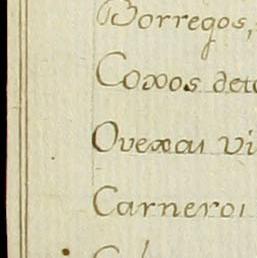 Borregos,
Coxos de
Ovexas vi
Carneros